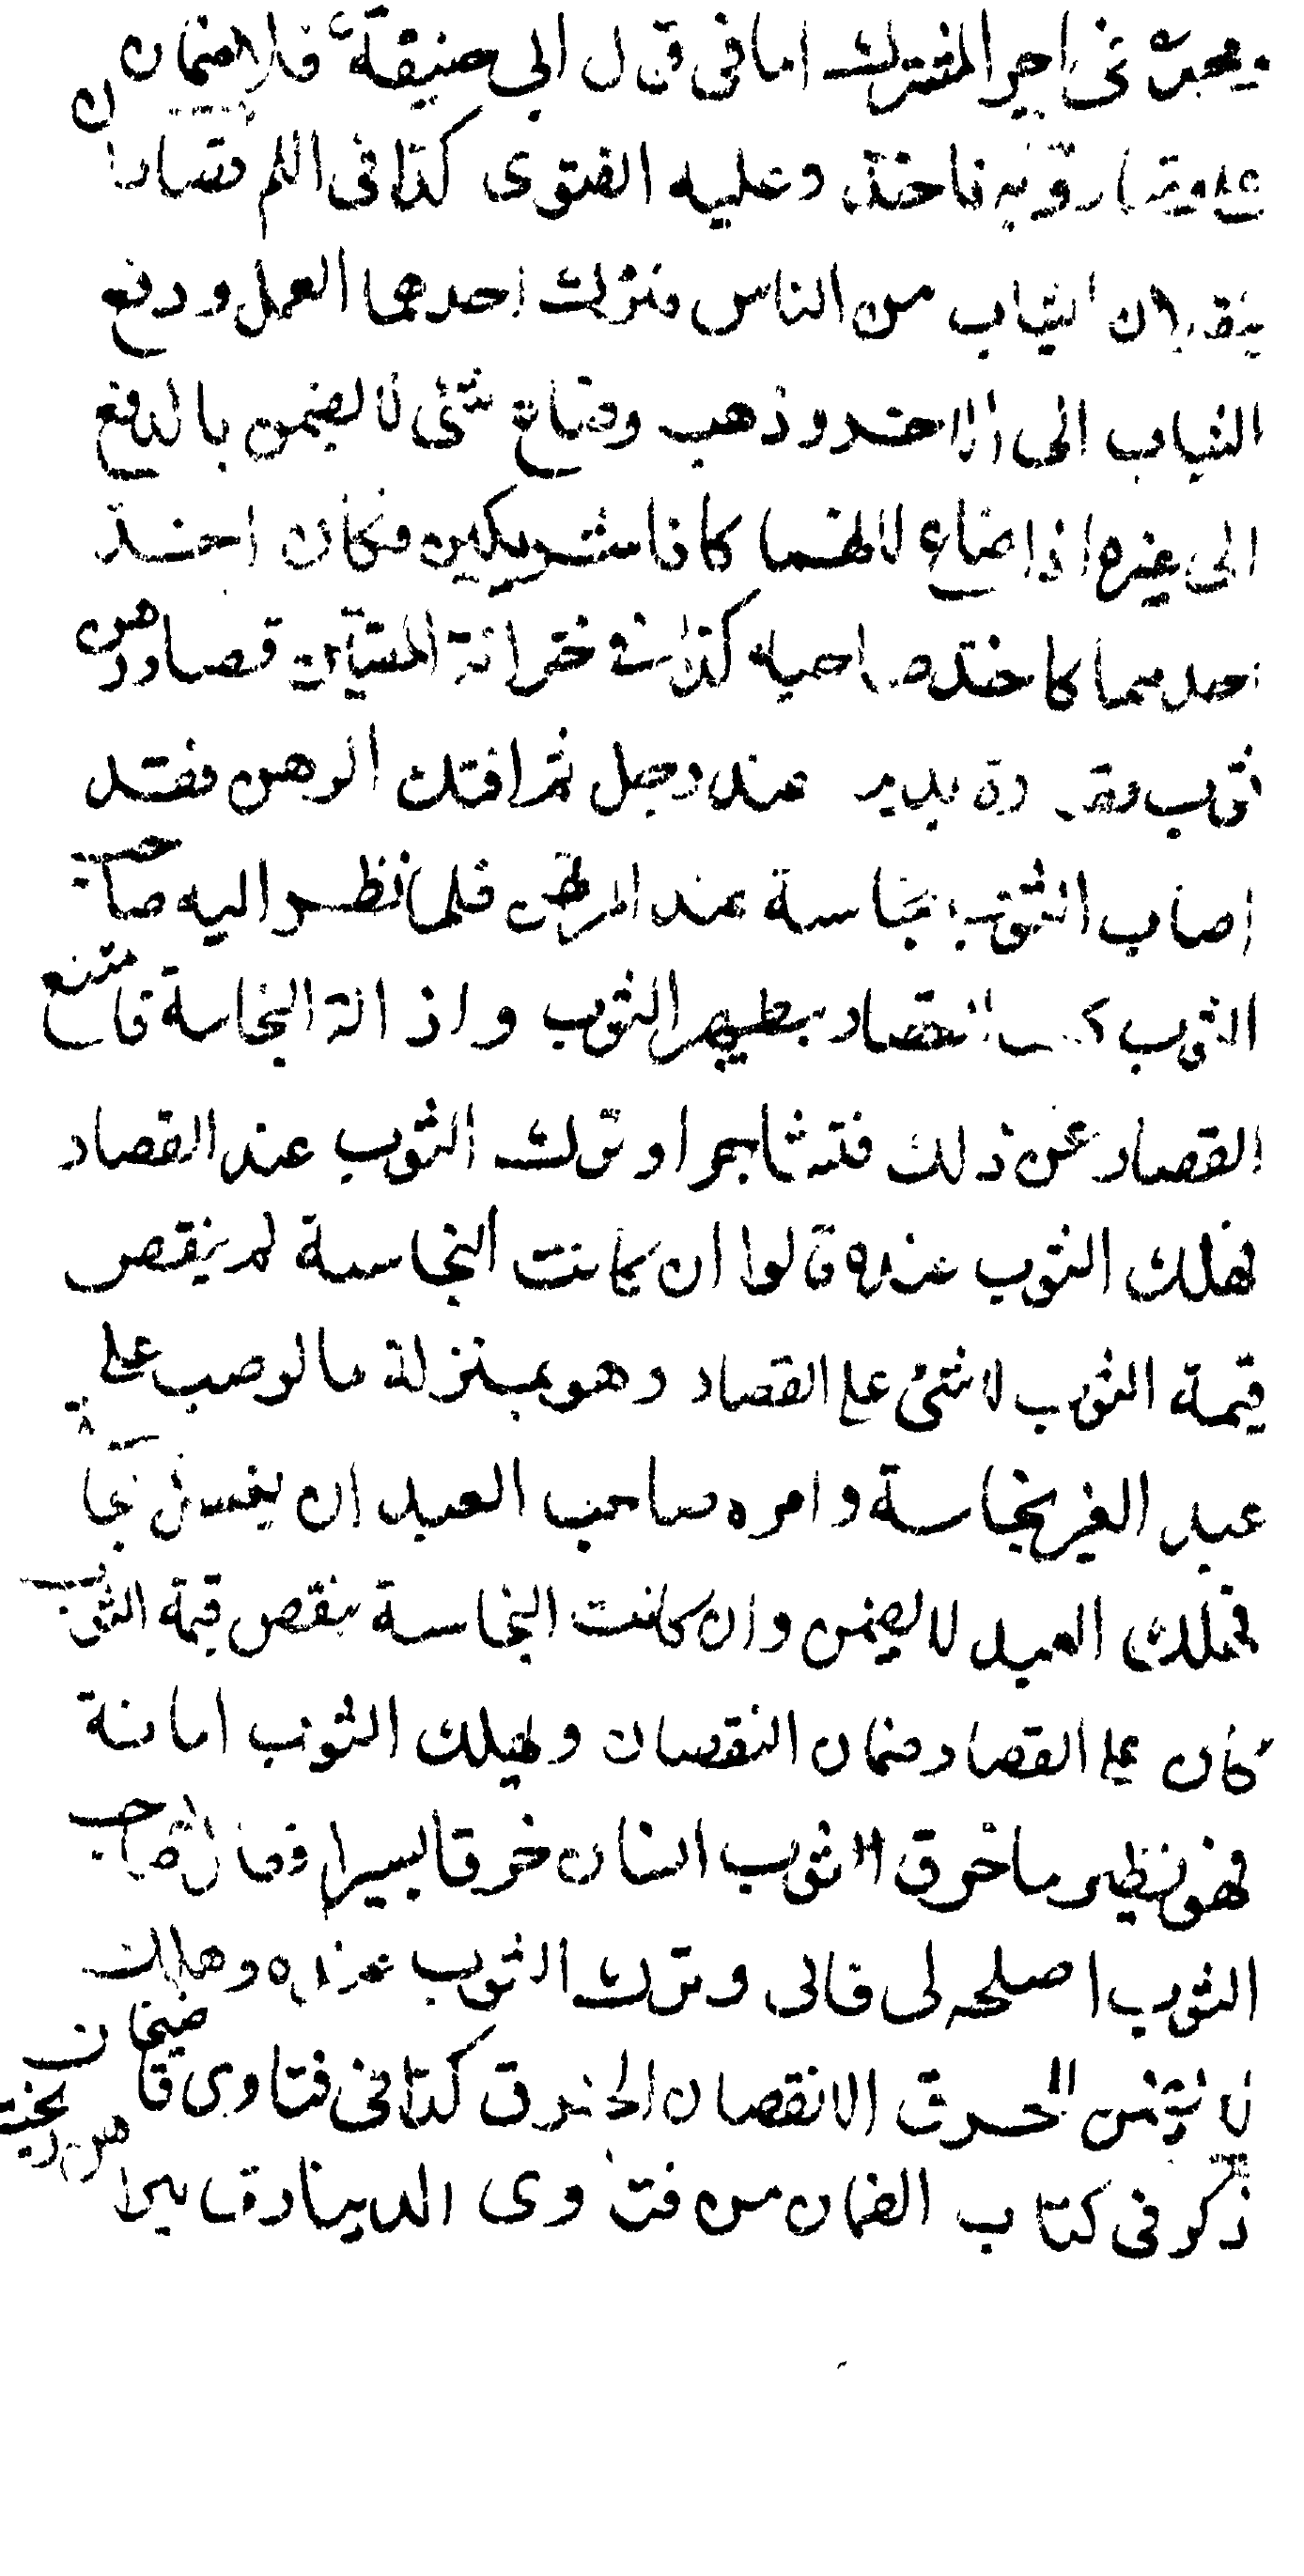 ويجبره في اجير المشترك اما في قول ابي حنيفة فلا ضمان
عليه وبه ناخذ وعليه الفتوى كذا في قصاران
يتقبلان الثياب من الناس فترك احدهما العمل ودفع
الثياب الى الاخر وذهب وضاع شئ لا يضمن بالدفع
الى غيره اذا ضاع لانهما كانا شريكين فكان اخذ
احدهما كاخذ صاحبه كذا في خزانة المفتين قصار رهن
ثوب عند رجل ثم افتك الرهن وقد
اصاب الثوب نجاسة عند المرتهن فلما نظر اليه صاحب
الثوب القصار بتطهير الثوب وازالة النجاسة فامتنع
القصار عن ذلك فتشاجرا وترك الثوب عند القصار
فهلك الثوب عنده قالوا ان كانت النجاسة لم ينقص
قيمة الثوب لا شئ على القصار وهو بمنزلة ما لو صب على
عبد الغير نجاسة وامره صاحب العبد ان يغسل نجاسته
فهلك العبد لا يضمن وان كانت النجاسة ينقص قيمة الثوب
كان على القصار ضمان النقصان ويهلك الثوب امانة
فهو نظير ما خرق الثوب انسان خرقا يسيرا فقال صاحب
الثوب اصلحه لي فابى وترك الثوب عنده وهلك
لا يضمن الخرق الا نقصان الخرق كذا في فتاوى قاضيخان
ذكر في كتاب الضمان من فتاوى الديناري